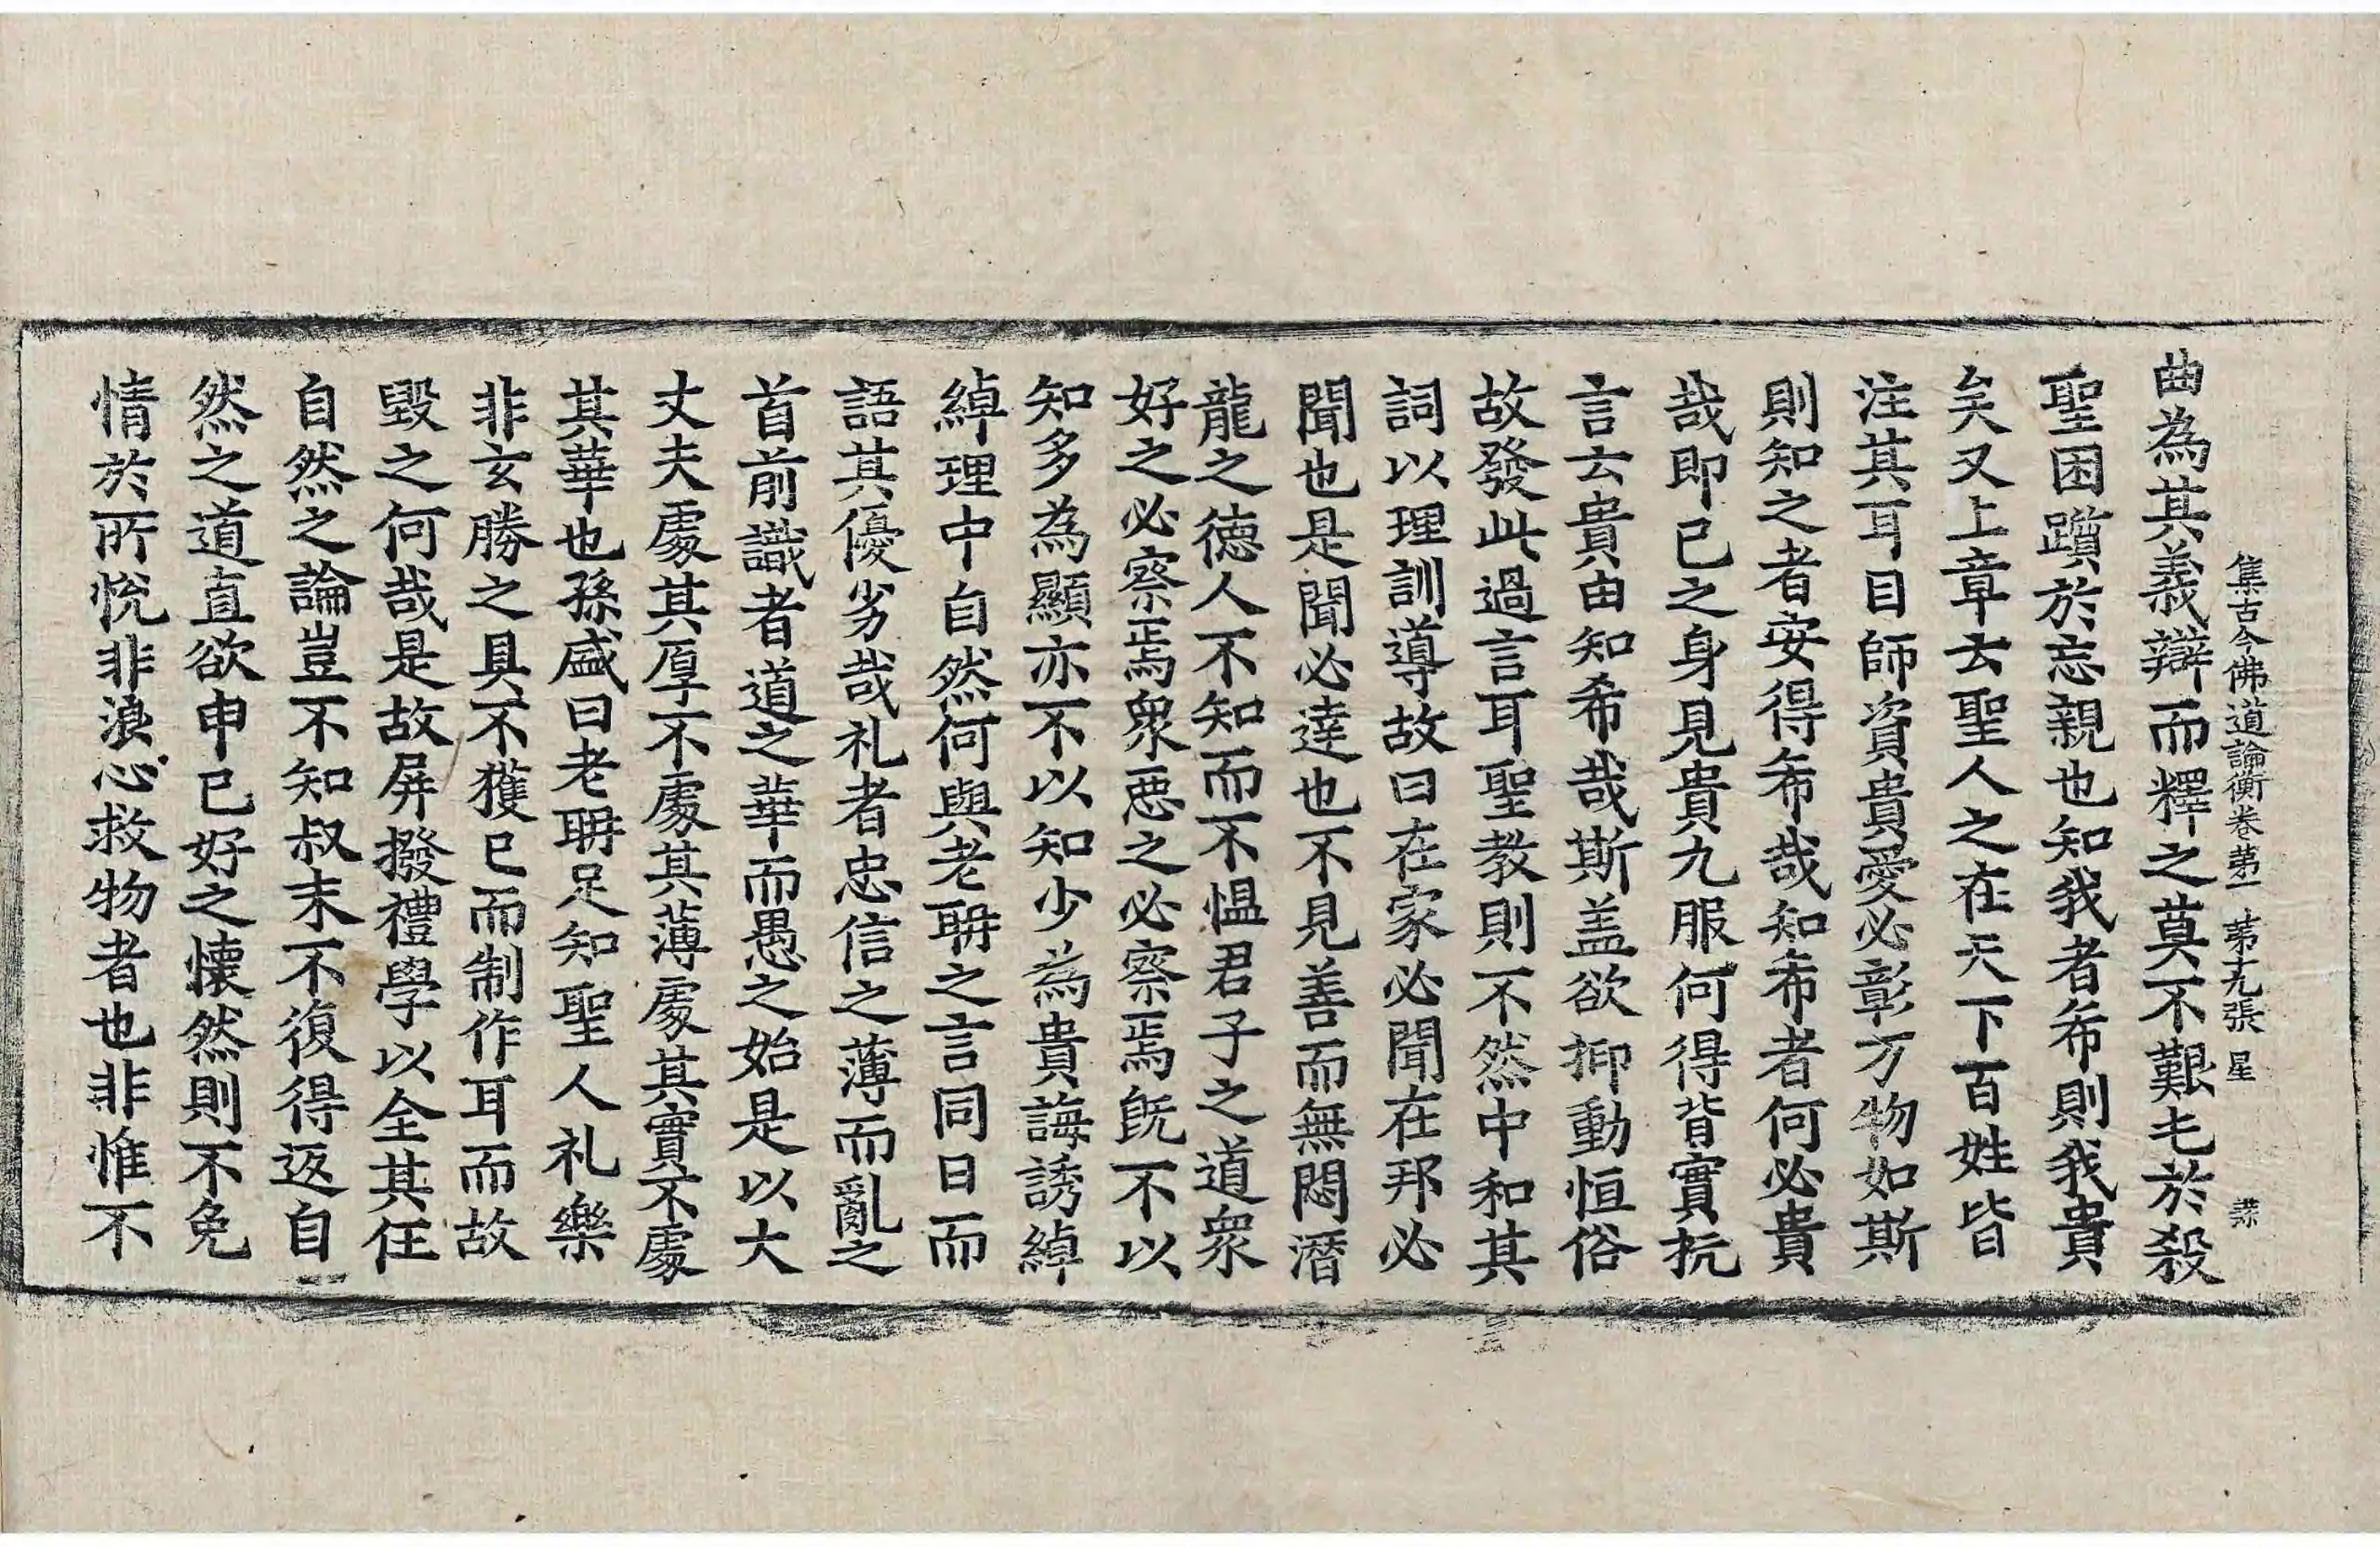 集古今佛道論衡卷第一 第十九張 星
曲為其義辯而釋之莫不艱乇於殺
聖困躓於忘親也知我者希則我貴
矣又上章云聖人之在天下百姓皆
注其耳目師資貴愛必彰万物如斯
則知之者安得希哉知希者何必貴
哉即已之身見貴九服何得背實抗
言云貴由知希哉斯盖欲抑動恒俗
故發此過言耳聖教則不然中和其
詞以理訓導故曰在家必聞在邦必
聞也是聞必達也不見善而無悶潛
龍之德人不知而不愠君子之道衆
好之必察焉衆惡之必察焉旣不以
知多為顯亦不以知少為貴誨誘綽
綽理中自然何與老聃之言同日而
語其優劣哉礼者忠信之薄而亂之
首前識者道之華而愚之始是以大
丈夫處其厚不處其薄處其實不處
其華也孫盛曰老聃足知聖人礼樂
非玄勝之具不獲已而制作耳而故
毀之何哉是故屏撥禮學以全其任
自然之論豈不知叔末不復得返自
然之道直欲申已好之懷然則不免
情於所悅非浪心救物者也非惟不